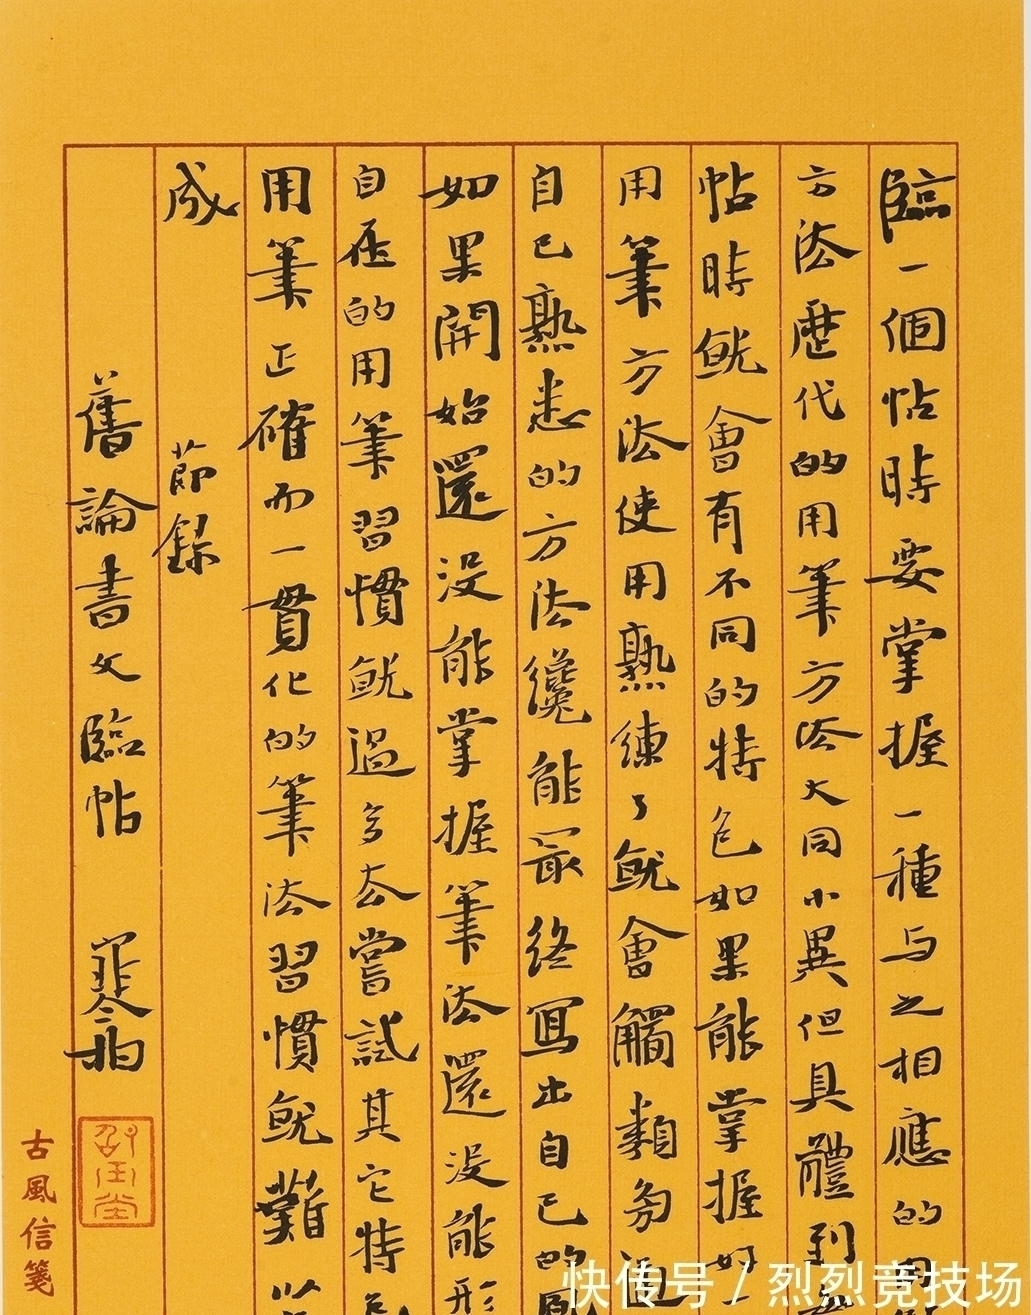 臨一個帖時要掌握一種与之相應的用
方法歷代的用筆方法大同小異但具體到
帖時就會有不同的特色如果能掌握好一
用筆方法使用熟練了就會觸類旁通
自己熟悉的方法纔能最終寫出自己的風
如果開始還沒能掌握筆法還沒能形
自在的用筆習慣就過多去嘗試其它特色
用筆正確而一貫化的筆法習慣就難以
成
節錄
舊論書文臨帖
古風信箋
快传号 / 烈烈竞技场